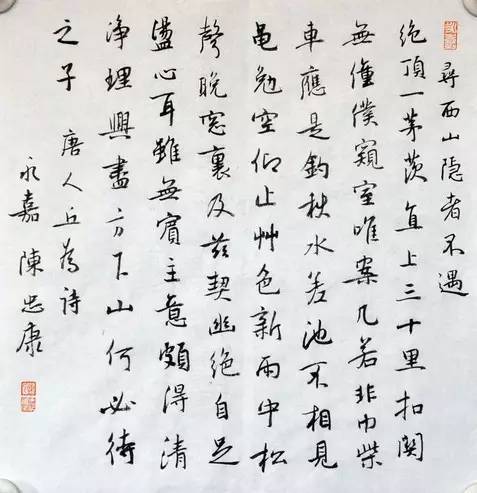 尋西山隐者不遇
绝頂一茅茨直上三十里扣関
無僮僕窺室唯案几若非巾柴
車應是釣秋水差池不相見
黽勉空仰止艸色新雨中松
聲晚窓裏及茲契幽绝自足
盪心耳雖無賓主意頗得清
淨理興盡方下山何必待
之子 唐人丘為詩
永嘉 陳忠康